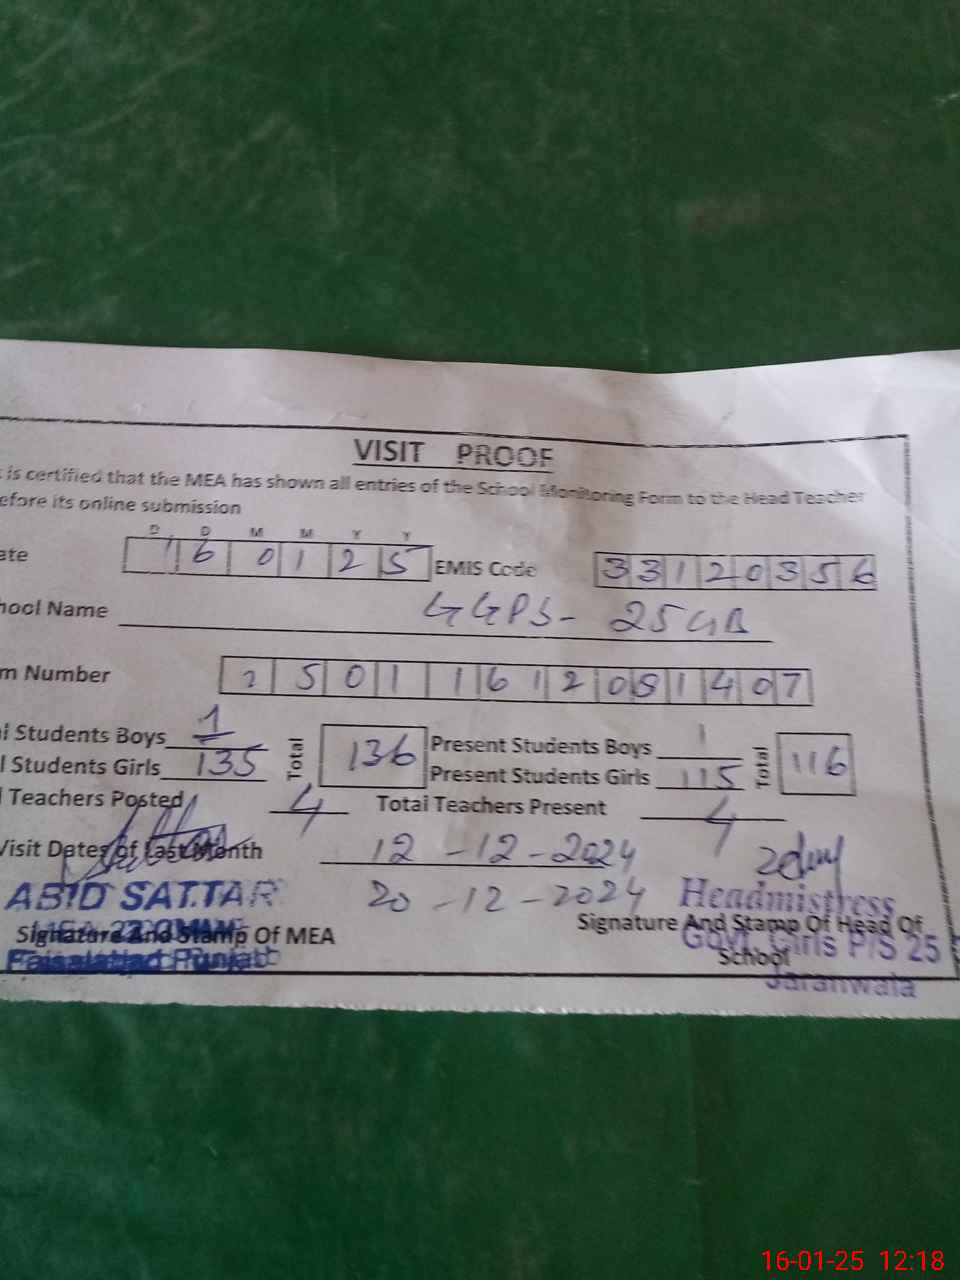 VISIT PROOF
is certified that the MEA has shown all entries of the School Monitoring Form to the Head Teacher
efore its online submission
D D M M Y Y
ate 16 01 25 EMIS Code 33120356
hool Name GGPS- 25 GB
m Number 25011612051407
l Students Boys 1 Total 136 Present Students Boys 1 Total 116
l Students Girls 135 Present Students Girls 115
l Teachers Posted 4 Total Teachers Present 4
Visit Dates of Last Month 12-12-2024
20-12-2024
ABID SATTAR
Headmistress
Signature And Stamp Of MEA
Signature And Stamp Of Head Of
School
Govt. Girls P/S 25
Faisalabad Punjab
Jaranwala
16-01-25 12:18